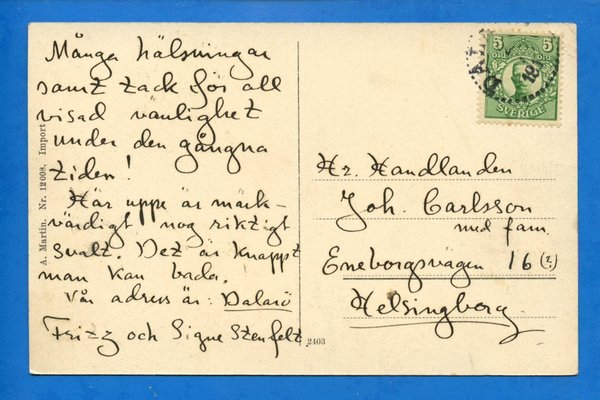 Många hälsningar
samt tack för all
visad vänlighet
under den gångna
tiden!
Här uppe är märk-
värdigt nog riktigt
svalt. Det är knappt
man kan bada.
Vår adress är: Dalarö
Fritz och Signe Stenfelt
A. Martin. Nr. 12008. Import
2403
5 5
ÖRE ÖRE
SVERIGE
18
Hr. Handlanden
Joh. Carlsson
med fam.
Eneborgsvägen 16 (?)
Helsingborg.